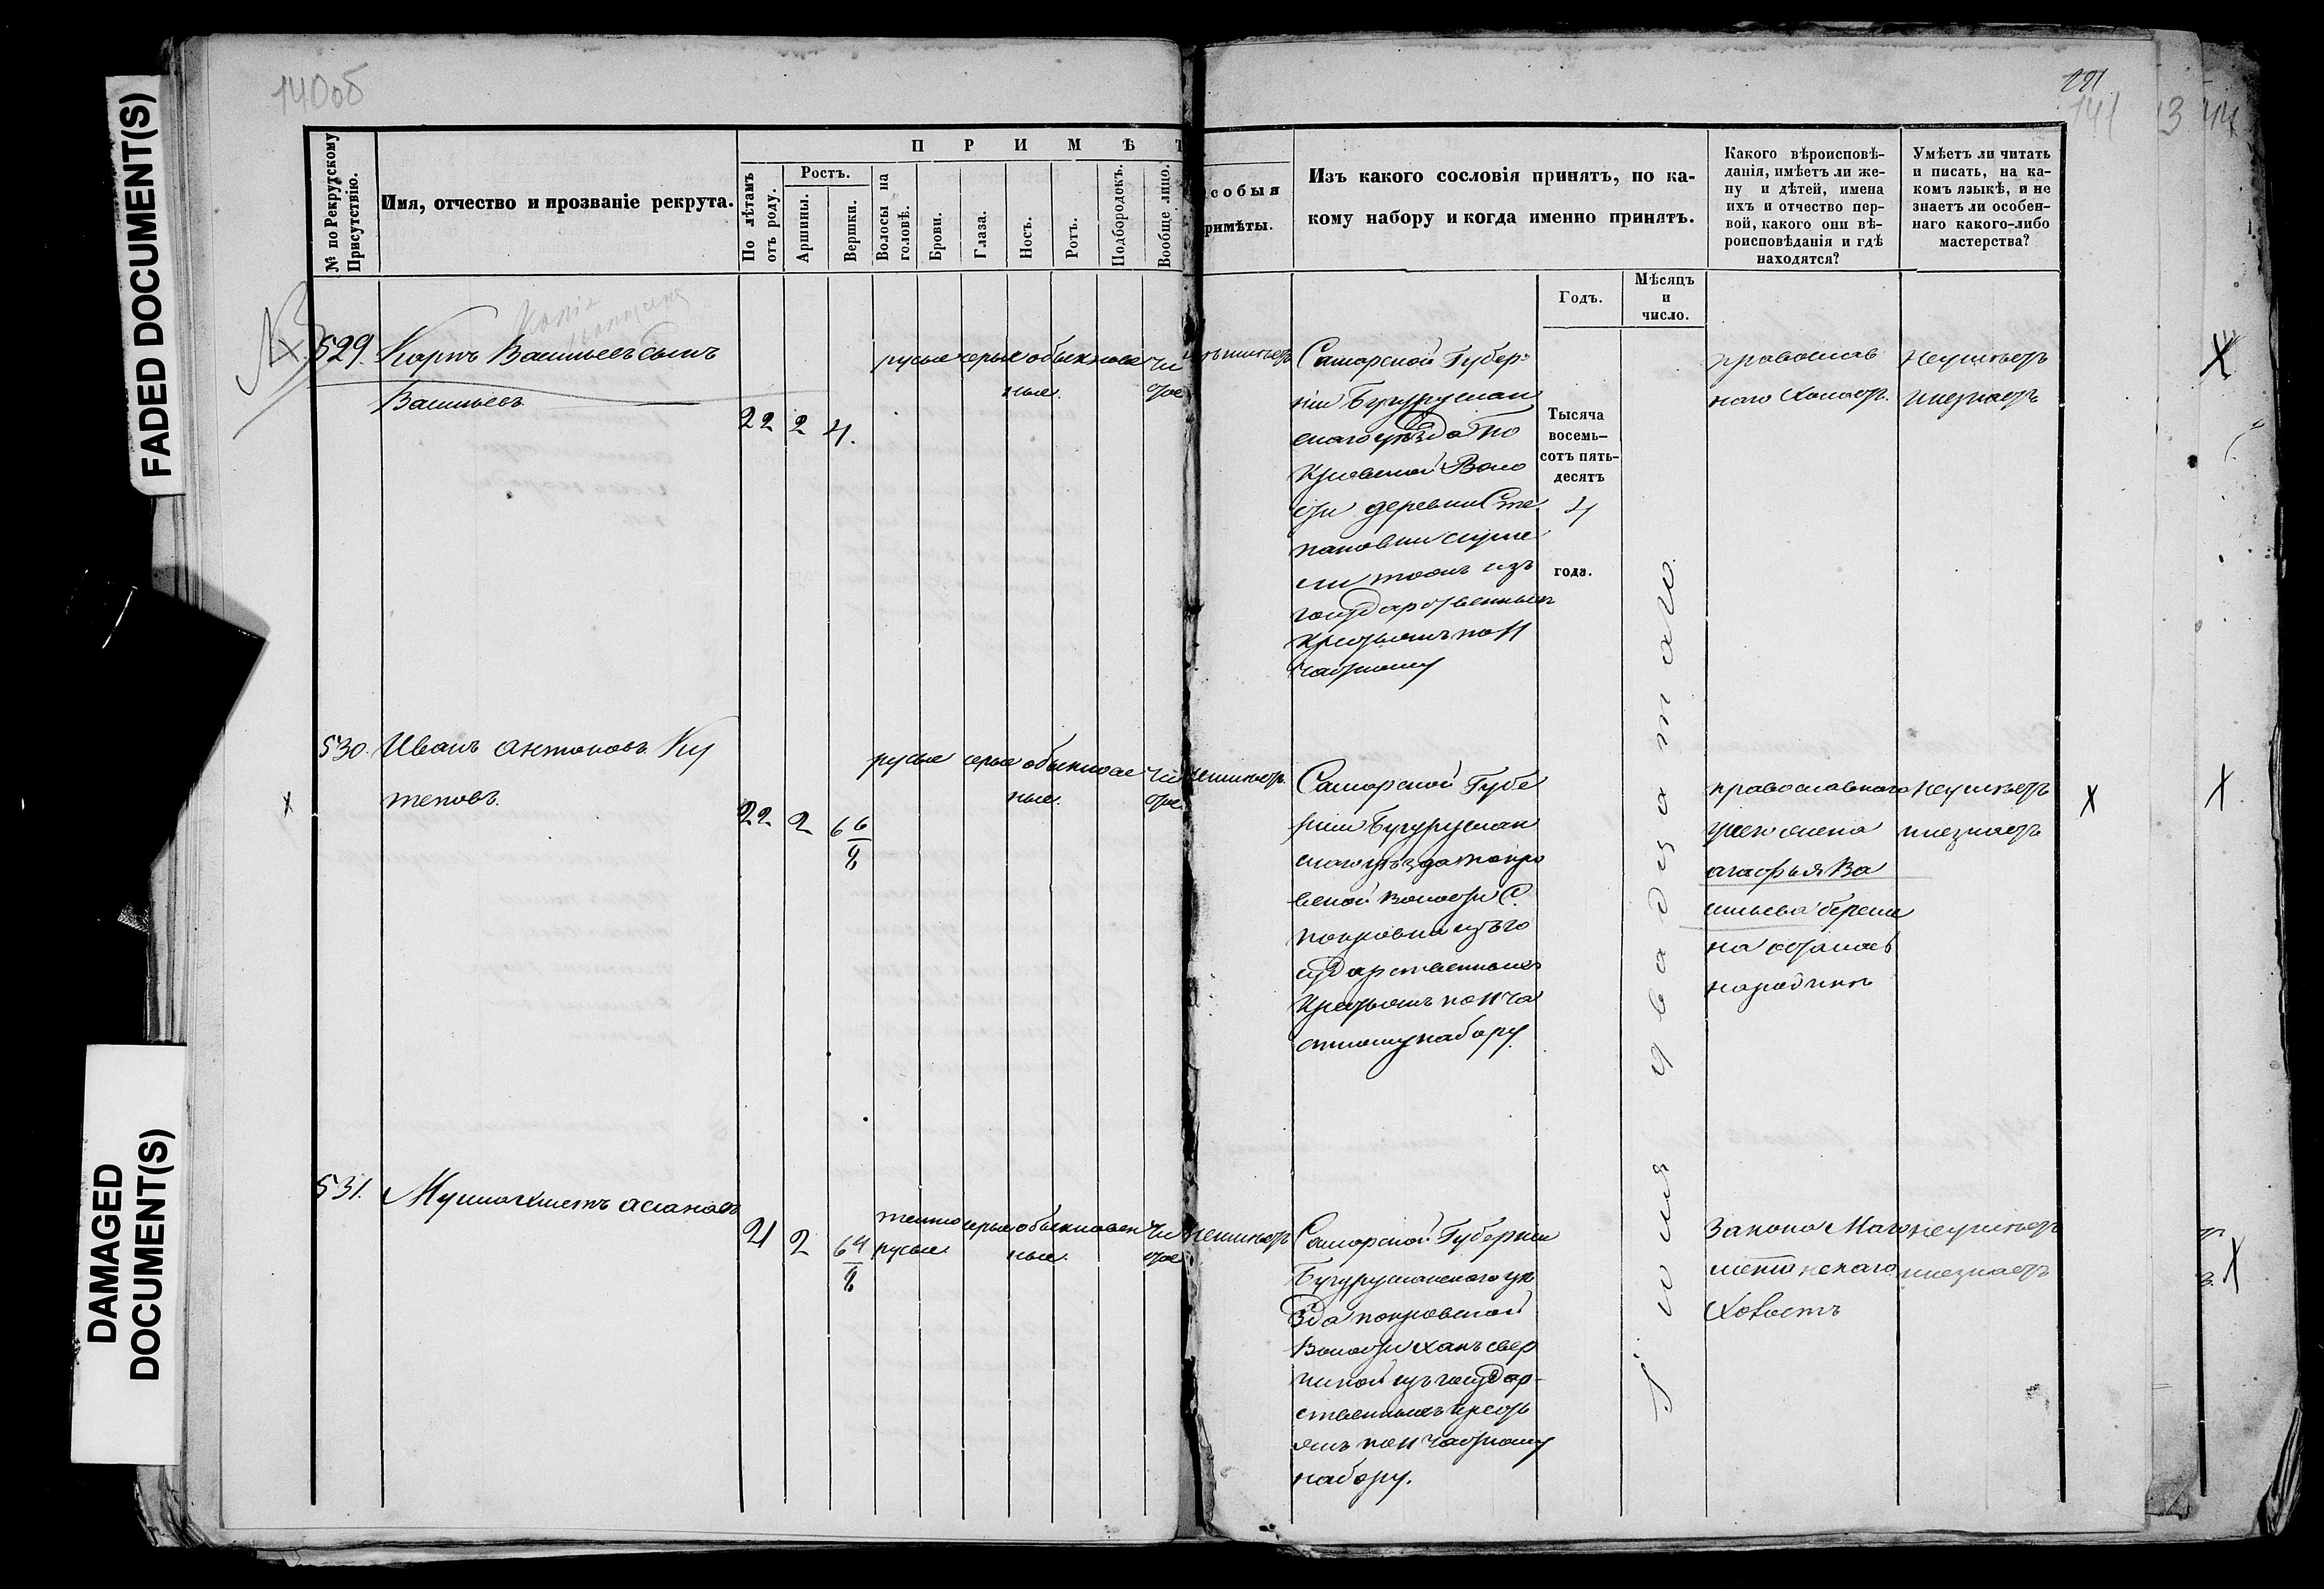 140об
281
141
13
44
FADED DOCUMENT(S)
DAMAGED
DOCUMENT(S)
№ по Рекрутскому
Присутствію.
Имя, отчество и прозваніе рекрута.
П Р И М Ѣ Т
По лѣтамъ
отъ роду.
Ростъ.
Аршины.
Вершки.
Волосы на
головѣ.
Брови.
Глаза.
Носъ.
Ротъ.
Подбородокъ.
Вообще лицо.
собыя
римѣты.
Изъ какого сословія принятъ, по ка-
кому набору и когда именно принятъ.
Годъ.
Мѣсяцъ
и
число.
Какого вѣроисповѣ-
данія, имѣетъ ли же-
ну и дѣтей, имена
ихъ и отчество пер-
вой, какого они вѣ-
роисповѣданія и гдѣ
находятся?
Умѣетъ ли читать
и писать, на ка-
комъ языкѣ, и не
знаетъ ли особен-
наго какого-либо
мастерства?
529.
Карпъ Васильевъ сынъ
Васильевъ
22 2 4.
русые серые обыкнове
ные.
чи
стое
Самарской Губер
ніи Бугуруслан
скаго уѣзда По
кровской Воло
сти деревни Сте
пановки
изъ
государственныхъ
крестьянъ по 11
частному
Тысяча
восемь-
сотъ пять-
десятъ
4
года.
Іюля двадцатаго.
православ
наго холостъ.
неумѣетъ
инезнаетъ
530.
Иванъ Антоновъ Ку
теповъ.
22 2 6 6/8
русые серые обыкновен
ные.
чи
стое
неимѣетъ
Самарской Губе
рніи Бугуруслан
скаго уѣзда Покро
вской Волости С.
Покровки изъ го
сударственныхъ
крестьянъ по 11 ча
стному набору.
православнаго
жена
Агафья Ва
сильева беремен
на осталась
народинѣ
неумѣетъ
инезнаетъ
531.
Мухаметъ Асановъ
21 2 6 4/8
темно
русые
серые обыкновен
ные.
чи
стое
неимѣетъ
Самарской Губерніи
Бугурусланскаго уѣ
зда Покровской
Волости
изъ государ
ственныхъ кресть
янъ по 11 частному
набору.
Закона Маго
метанскаго
Холостъ
неумѣетъ
инезнаетъ